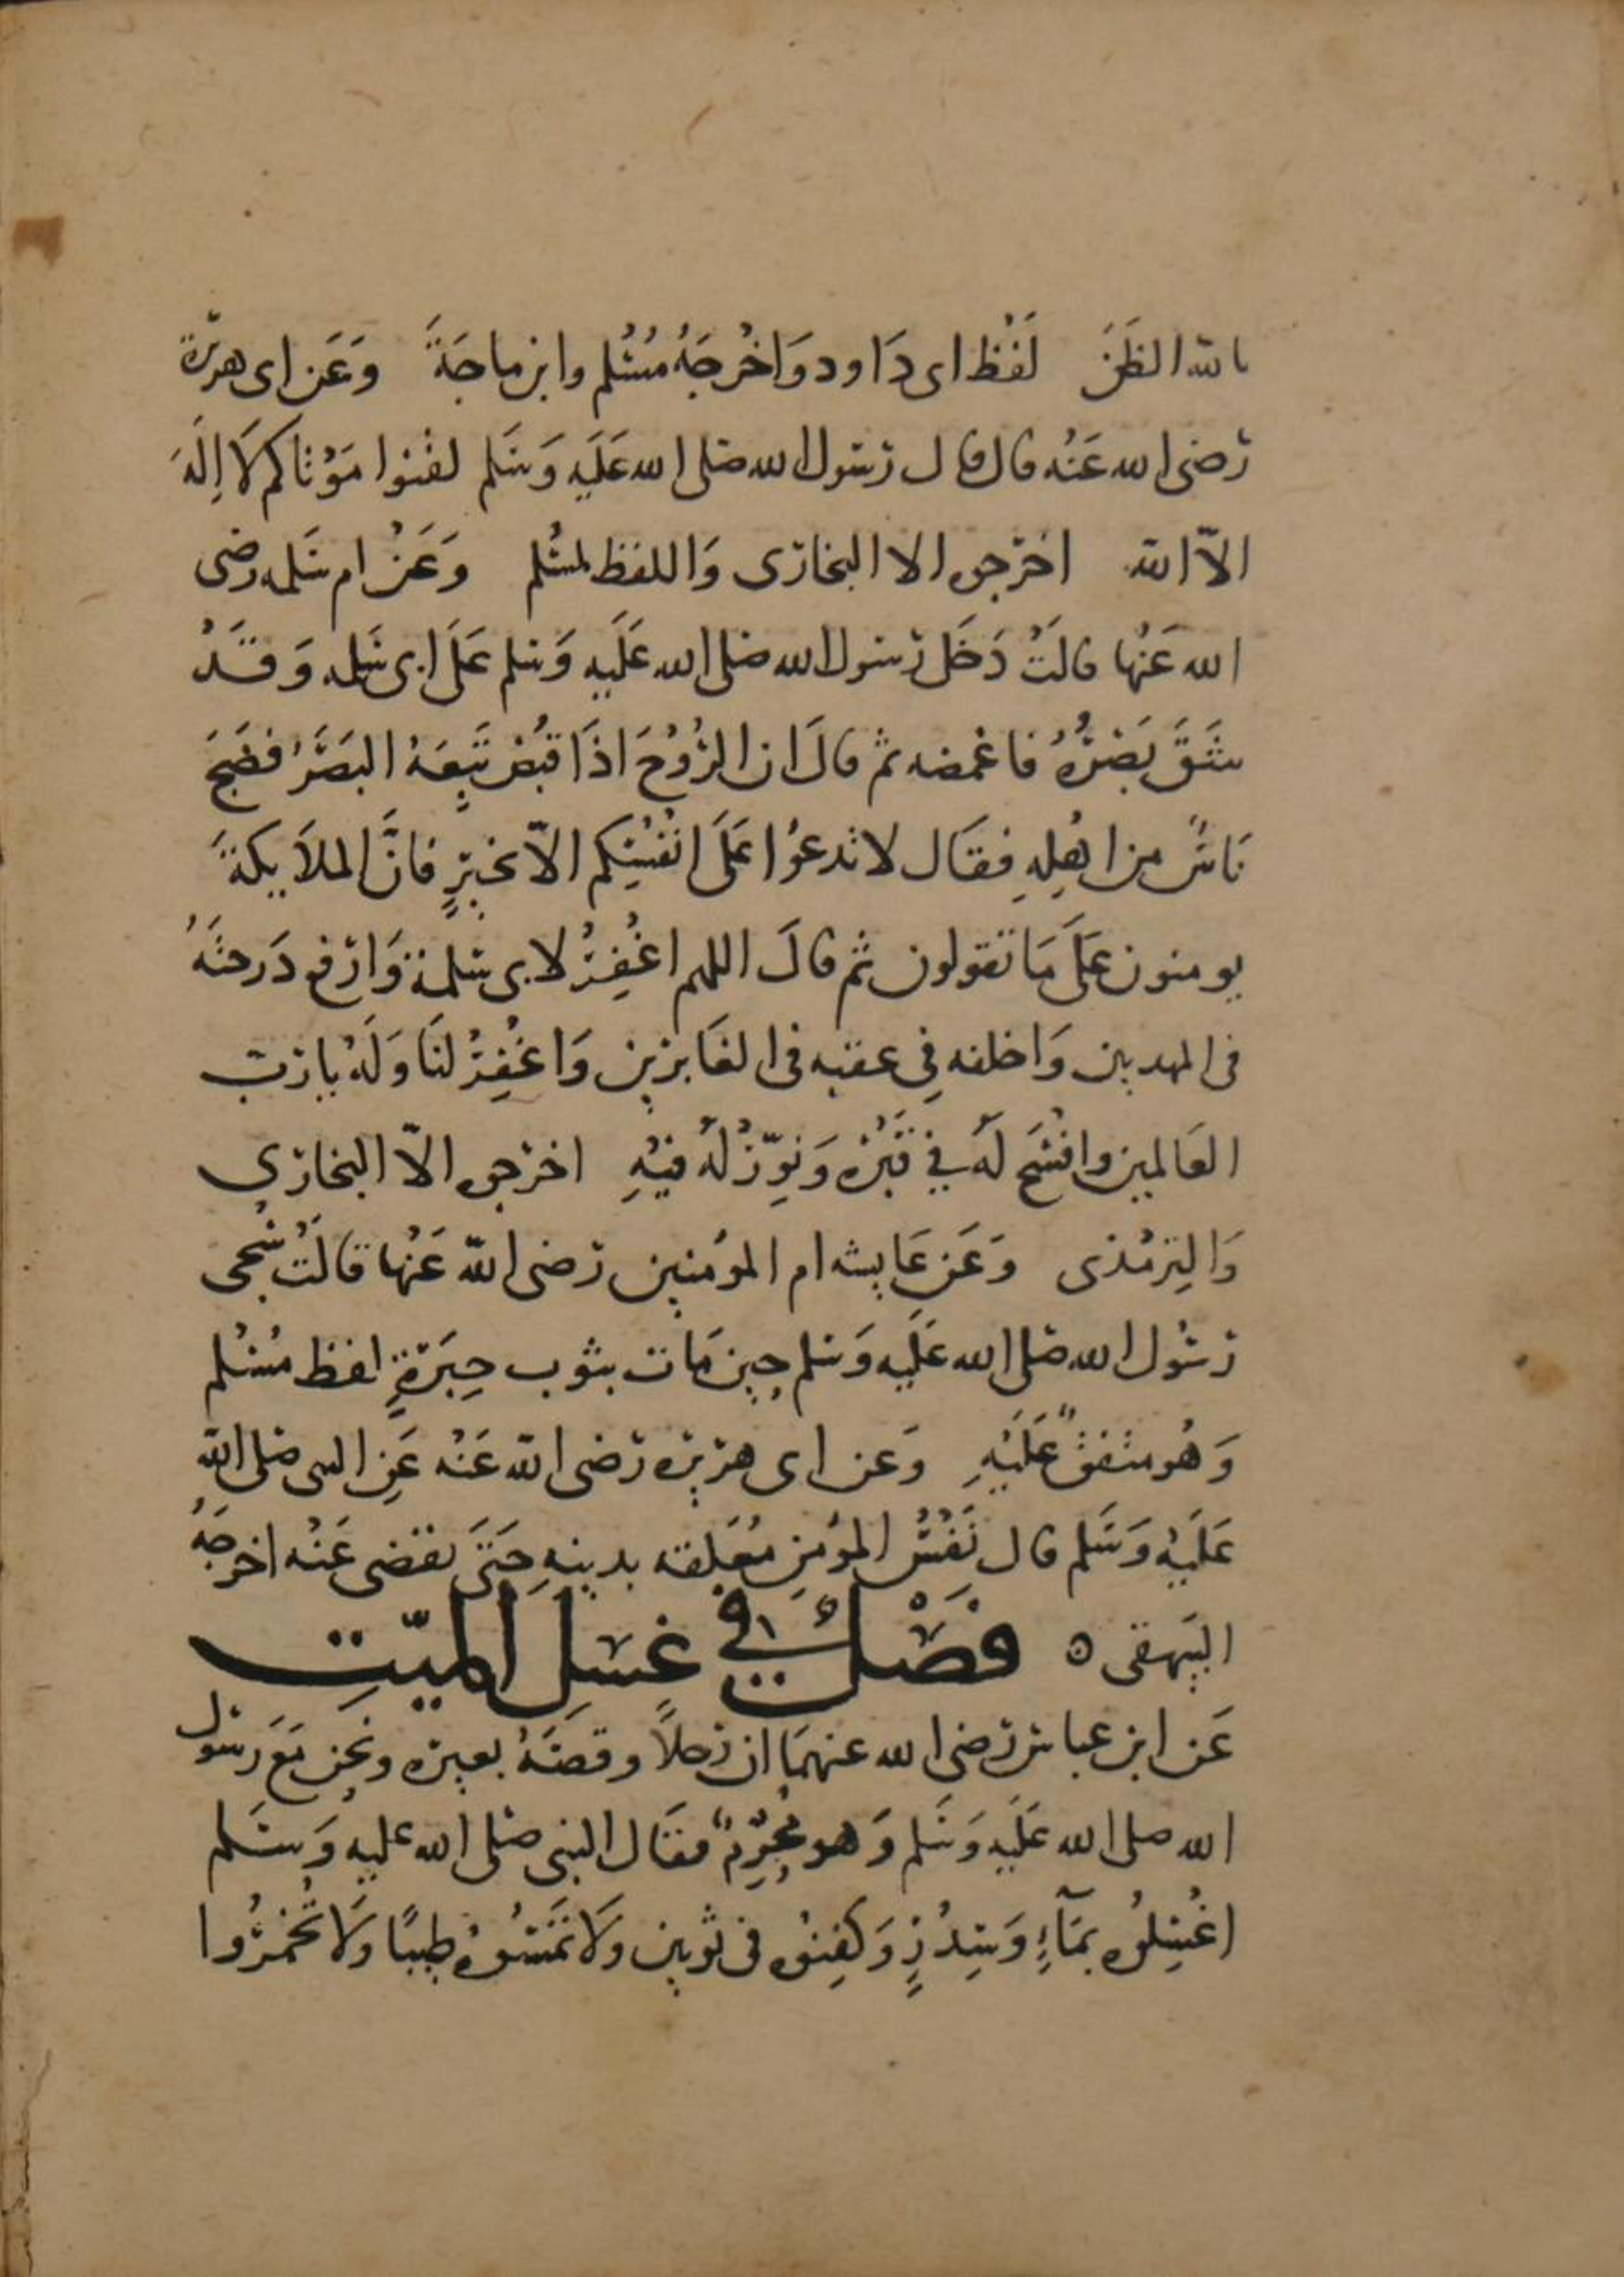 بالله الظَنَّ لَفْظ ابى دَاود وَاخْرجَهُ مُسْلم وابن ماجَةَ وَعَن ابى هريرة
رَضى الله عَنْه قال قال رسول الله صلى الله عَلَيه وَسَلم لقنوا مَوْتاكم لَا اِلَهَ
الاّ الله اخرجوه الا البخارى وَاللفظ لمسْلم وَعَنْ ام سَلمه رضى
الله عَنْها قالَتْ دَخَل رسول الله صلى الله عَلَيه وَسلم عَلَى ابى سَلمه وَقَدْ
شَقَّ بَصَرُهُ فاغمضه ثم قالَ ان الرُوْحَ اذَا قبُض تَبِعَهُ البَصَرُ فضَجَ
نَاسٌ من اهْلِهِ فقَال لا تدعوُا عَلَى انْفُسِكم الاّ بخيرٍ فانَّ الملَايكةَ
يومنون عَلَى مَا تقولون ثم قالَ اللهم اغْفِرْ لابى سَلمة وَارْفع دَرجتَهُ
فى المهديين وَاخلفه فِي عقبه فى الغَابرين وَاغْفِرْ لنَا وَلَهُ يا رَب
العَالمين وافْسَح لَهُ في قَبْرْه وَنوِّرْ لَهُ فيْهِ اخرجوه الاّ البخاري
وَالتِرمْذى وَعَن عَايشه ام المؤمنين رَضى الله عَنْها قالَتْ سُجى
رسُول الله صَلى الله عَلَيه وَسلم حِين مَات بثوب حِبَرَةٍ لفظ مسْلم
وَهُو متفقٌ عَلَيْهِ وَعن ابى هريره رَضى الله عَنْه عَنِ النبى صَلى الله
عَلَيْه وَسَلم قال نَفْسُ المؤمن مُعَلقه بدينهِ حَتَى يقضى عَنْه اخرجَهُ
البَيهقى ه فَصْلٌ في غسَلِ الميّتِ
عَن ابن عباس رَضى الله عنهمَا ان رَجلاً وقصَتَهُ بعيره ونحن مَعَ رَسول
الله صلى الله عَلَيه وَسَلم وَهو مُحْرِمٌ فقَال النبى صَلى الله عليه وَسَلم
اغْسِلُوه بمَآءٍ وَسِدْرٍ وَكَفِنوُه فى ثوبين وَلَا تمَسُوهُ طيبًا وَلَا تُخمرُوا